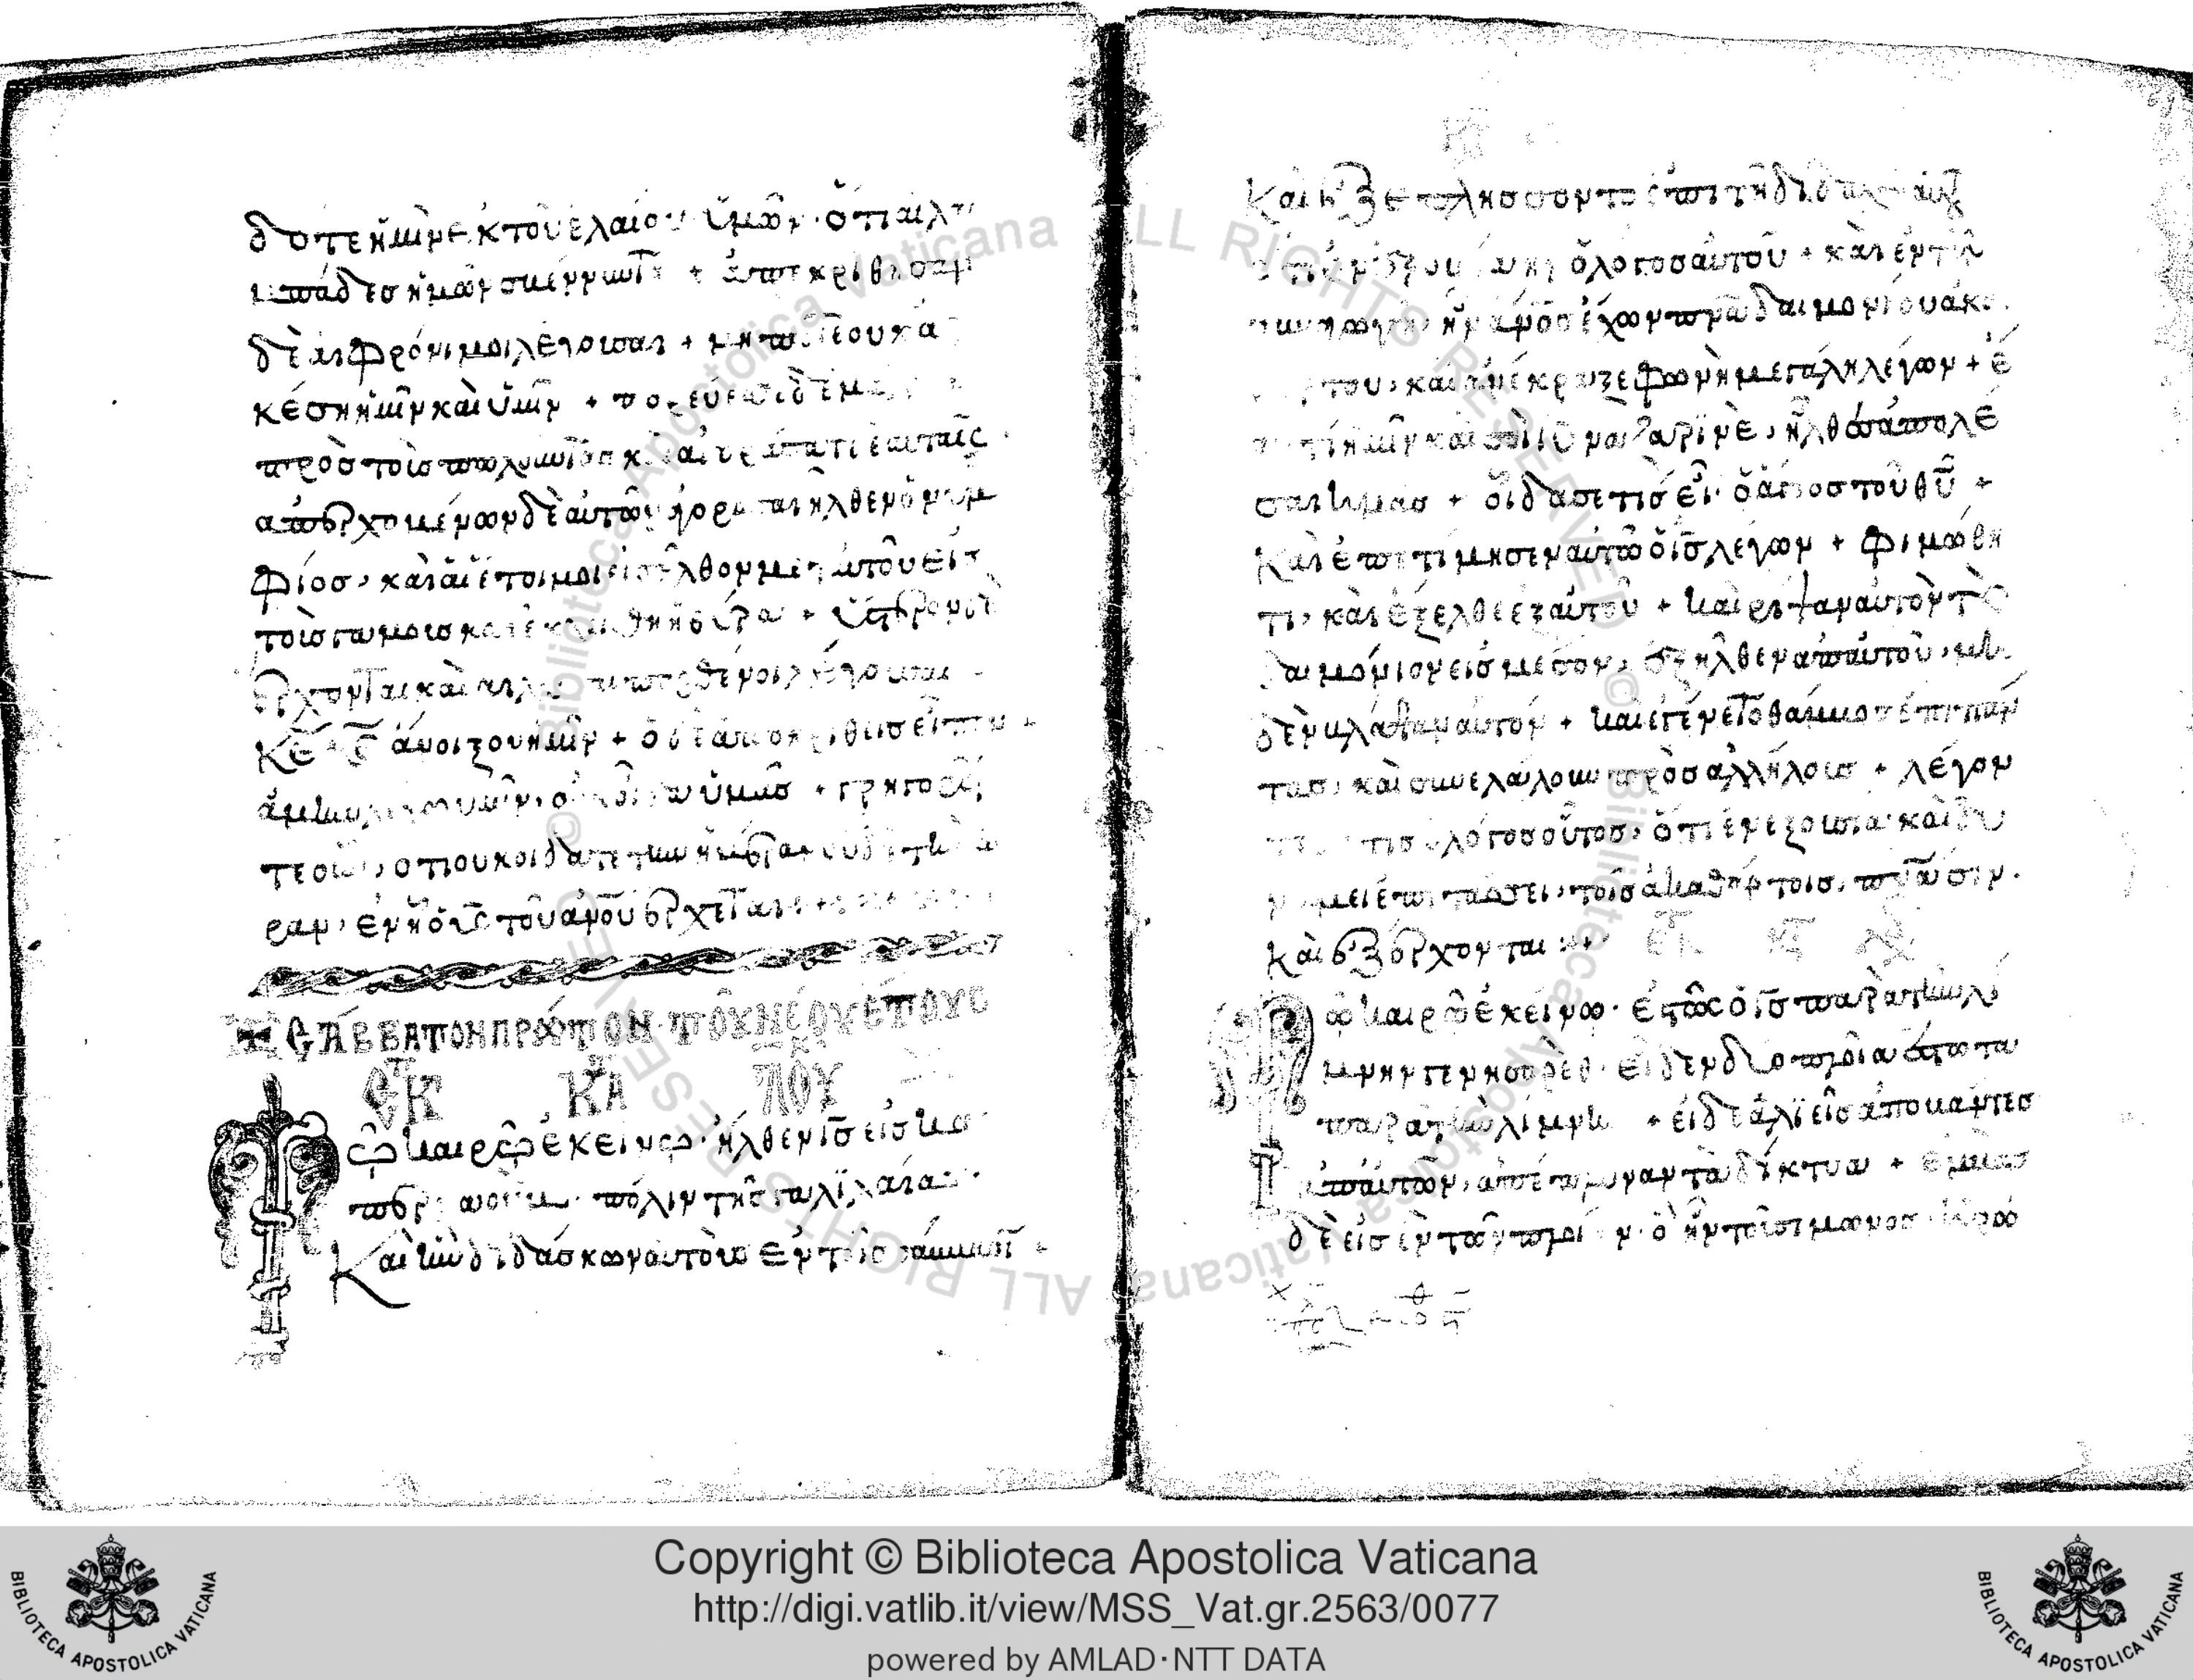 δοτε ἡμῖν ἐκ τοῦ ἐλαίου ὑμῶν· ὅτι αἱ λα
μπάδες ἡμῶν σβέννυντ + ἀπεκρίθησαν
δὲ αἱ φρόνιμοι λέγουσαι + μήποτε οὐκ ἀρ
κέση ἡμῖν καὶ ὑμῖν + πορεύεσθε δὲ μᾶ
πρὸς τοὺς πωλοῦντας καὶ ἀγοράσατε ἑαυταῖς
ἀπερχομένων δὲ αὐτῶν ἀγοράσαι ἦλθεν ὁ νυμ
φίος, καὶ αἱ ἕτοιμοι εἰσῆλθον μετ αὐτοῦ εἰς
τοὺς γάμους καὶ ἐκλείσθη ἡ θύρα + ὕστερον δὲ
ἔρχονται καὶ αἱ λοι παρθένοι λέγουσαι
κε κε ἄνοιξον ἡμῖν + ὁ δὲ ἀποκριθεὶς εἶπεν +
ἀμὴν λέγω ὑμῖν, οὐκ οἶδα ὑμᾶς + γρηγορεῖ
τε οὖν, ὅτι οὐκ οἴδατε τὴν ἡμέραν οὐδὲ τὴν ὥ
ραν, ἐν ἧ ὁ υς τοῦ ανου ἔρχεται
+ CΑΒΒΑΤΟΝ ΠΡΩΤΟΝ ΤΟΥ ΝΕΟΥ ΕΤΟΥC
ΕΚ ΚΑΤΑ ΛΟΥ
Τῷ καιρῷ ἐκείνῳ· ἦλθεν ις εἰς κα
περναοὺμ πόλιν τῆς γαλιλαίας·
Καὶ ἦν διδάσκων αὐτοὺς ἐν τοῖς σάββασι
Καὶ ἐξεπλήσσοντο ἐπὶ τῆ διδαχῆ αὐτοῦ
ὅτι ἐν ἐξουσία ἦν ὁ λόγος αὐτοῦ + καὶ ἐν τῆ
συναγωγῆ ἦν ανος ἔχων πνα δαιμονίου ἀκα
θάρτου, καὶ ἀνέκραξε φωνῆ μεγάλη λέγων + ἔ
α τί ἡμῖν καὶ σοὶ ιυ ναζαρινὲ, ἦλθες ἀπολέ
σαι ἡμᾶς + οἶδά σε τίς εἶ· ὁ ἅγιος τοῦ θυ +
Καὶ ἐπετίμησεν αὐτῷ ὁ ις λέγων + φιμώθη
τι, καὶ ἔξελθε ἐξ αὐτοῦ + καὶ ρίψαν αὐτὸν τὸ
δαιμόνιον εἰς μέσον, ἐξῆλθεν ἀπ αὐτοῦ, μη
δὲν βλάψαν αὐτόν + καὶ ἐγένετο θάμβος ἐπὶ πάν
τας, καὶ συνελάλουν πρὸς ἀλλήλους + λέγον
τες τίς ὁ λόγος οὗτος, ὅτι ἐν ἐξουσία καὶ δυ
νάμει ἐπιτάσσει τοῖς ἀκαθάρτοις πνασιν.
καὶ ἐξέρχονται
Τῷ καιρῷ ἐκείνῳ· ἑστὼς ὁ ις παρὰ τὴν λί
μνην γεννησαρέθ· εἶδεν δύο πλοῖα ἑστῶτα
παρὰ τὴν λίμνην + οἱ δὲ ἁλιεῖς ἀποβάντες
ἀπ αὐτῶν, ἀπέπλυναν τὰ δίκτυα + ἐμβὰς
δὲ εἰς ἓν τῶν πλοίων· ὃ ἦν τοῦ σίμωνος, ἠρώ
Copyright © Biblioteca Apostolica Vaticana
http://digi.vatlib.it/view/MSS_Vat.gr.2563/0077
powered by AMLAD·NTT DATA